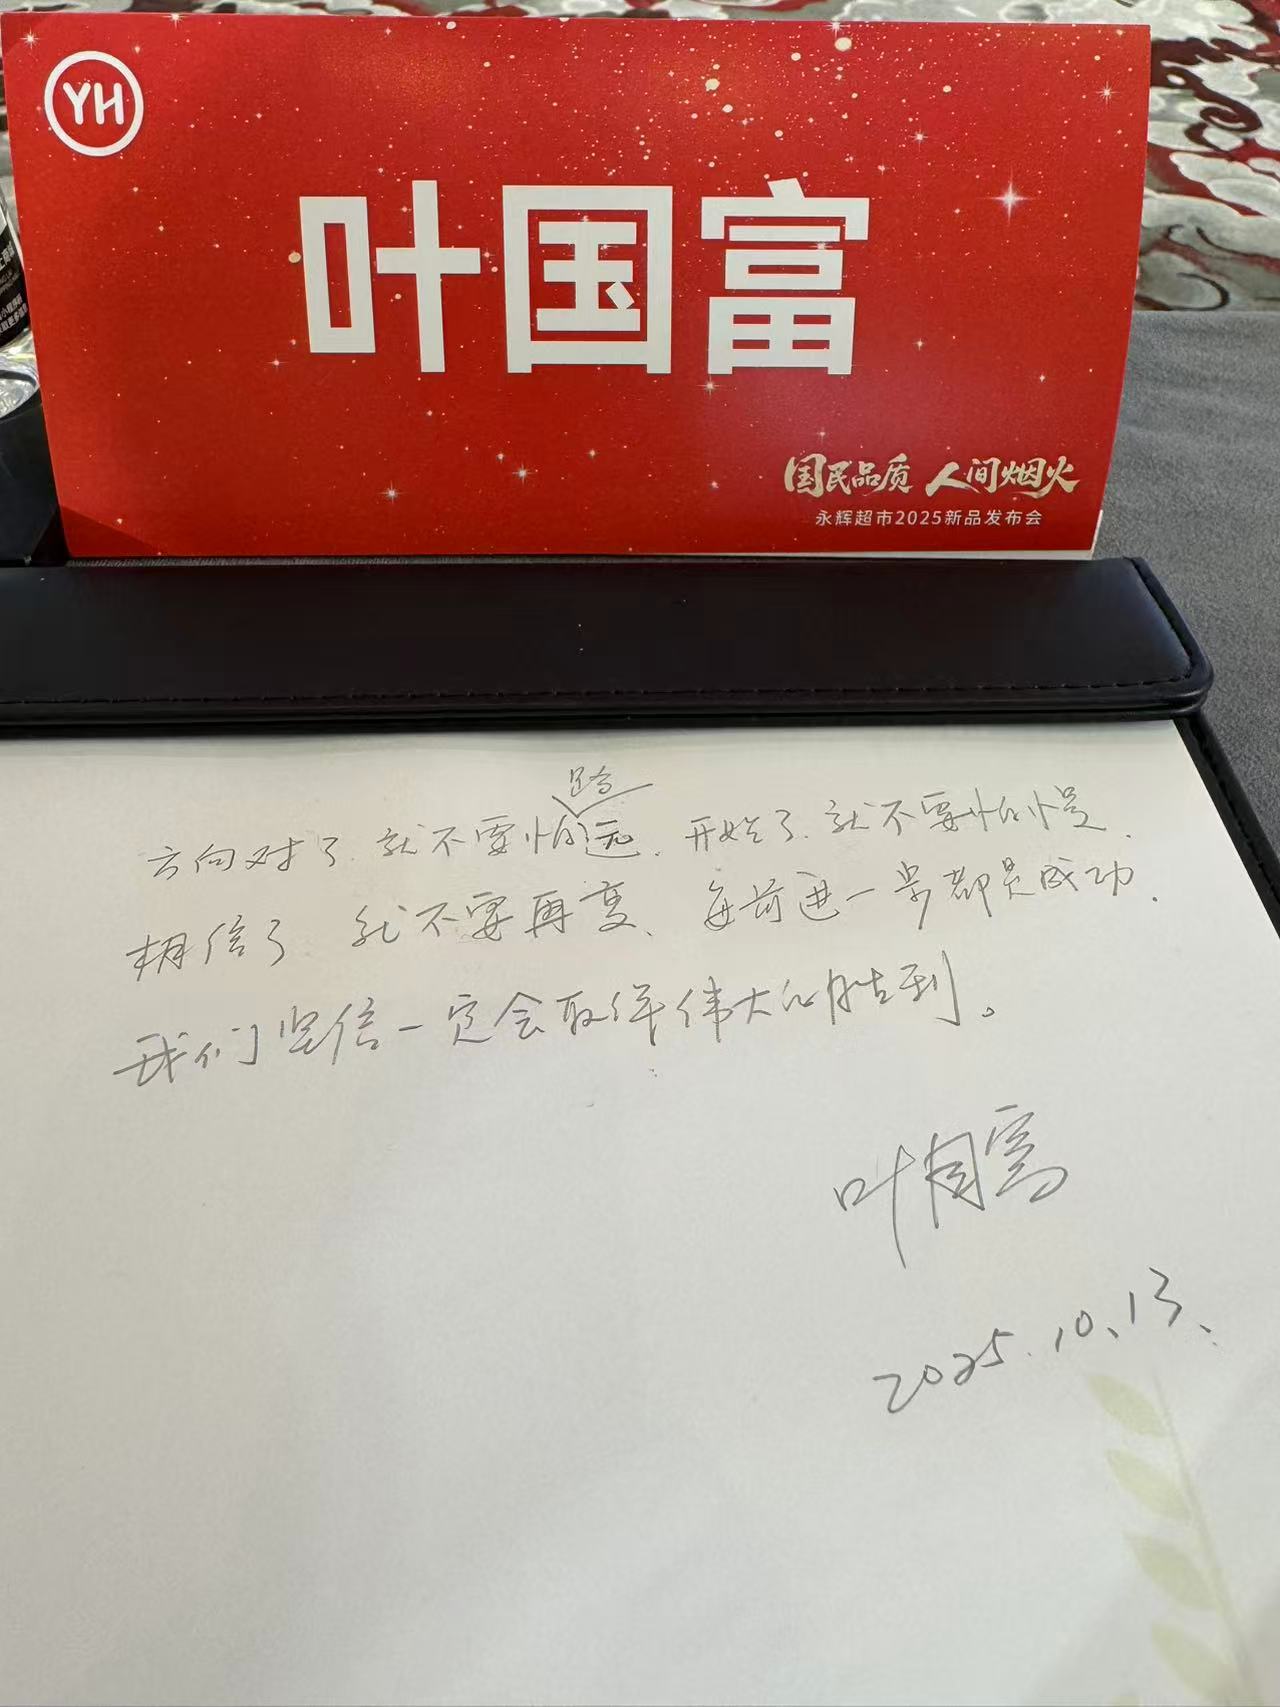 YH
叶国富
国民品质 人间烟火
永辉超市2025新品发布会
路
方向对了.就不要怕远、开始了.就不要怕慢.
相信了 就不要再变、每前进一步都是成功.
我们坚信一定会取得伟大的胜利。
叶国富
2025.10、13、